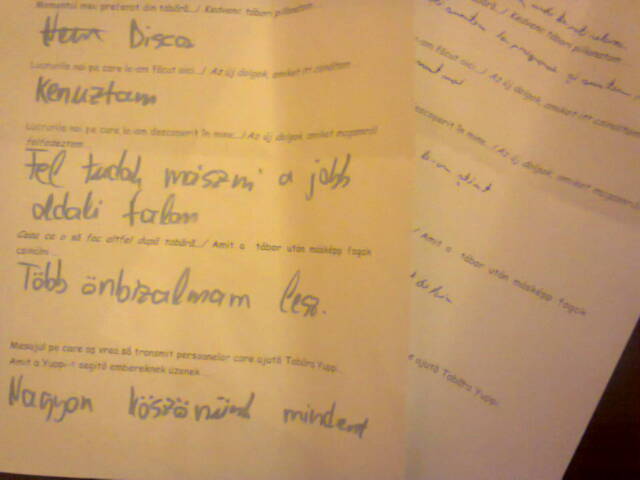 Momentul meu preferat din tabără../ Kedvenc tábori pillanatom
Disco
Lucrurile noi pe care le-am făcut aici.../ Az új dolgok, amiket itt csináltam
Kenuztam
Lucrurile noi pe care le-am descoperit în mine.../ Az új dolgok, amiket magamról
felfedeztem
Fel tudok mászni a jobb
oldali falon
Ceea ce o să fac altfel după tabără../ Amit a tábor után másképp fogok
csinálni
Több önbizalmam lesz.
Mesajul pe care aş vrea să transmit persoanelor care ajută Tabăra Yuppi
Amit a Yuppi-t segítő embereknek üzenek
Nagyon köszönünk mindent
Kedvenc tábori pillanatom
am făcut aici.../ Az új dolgok, amiket itt csináltam
descoperit în mine.../ Az új dolgok, amiket magamról
/ Amit a tábor után másképp fogok
e ajută Tabăra Yuppi